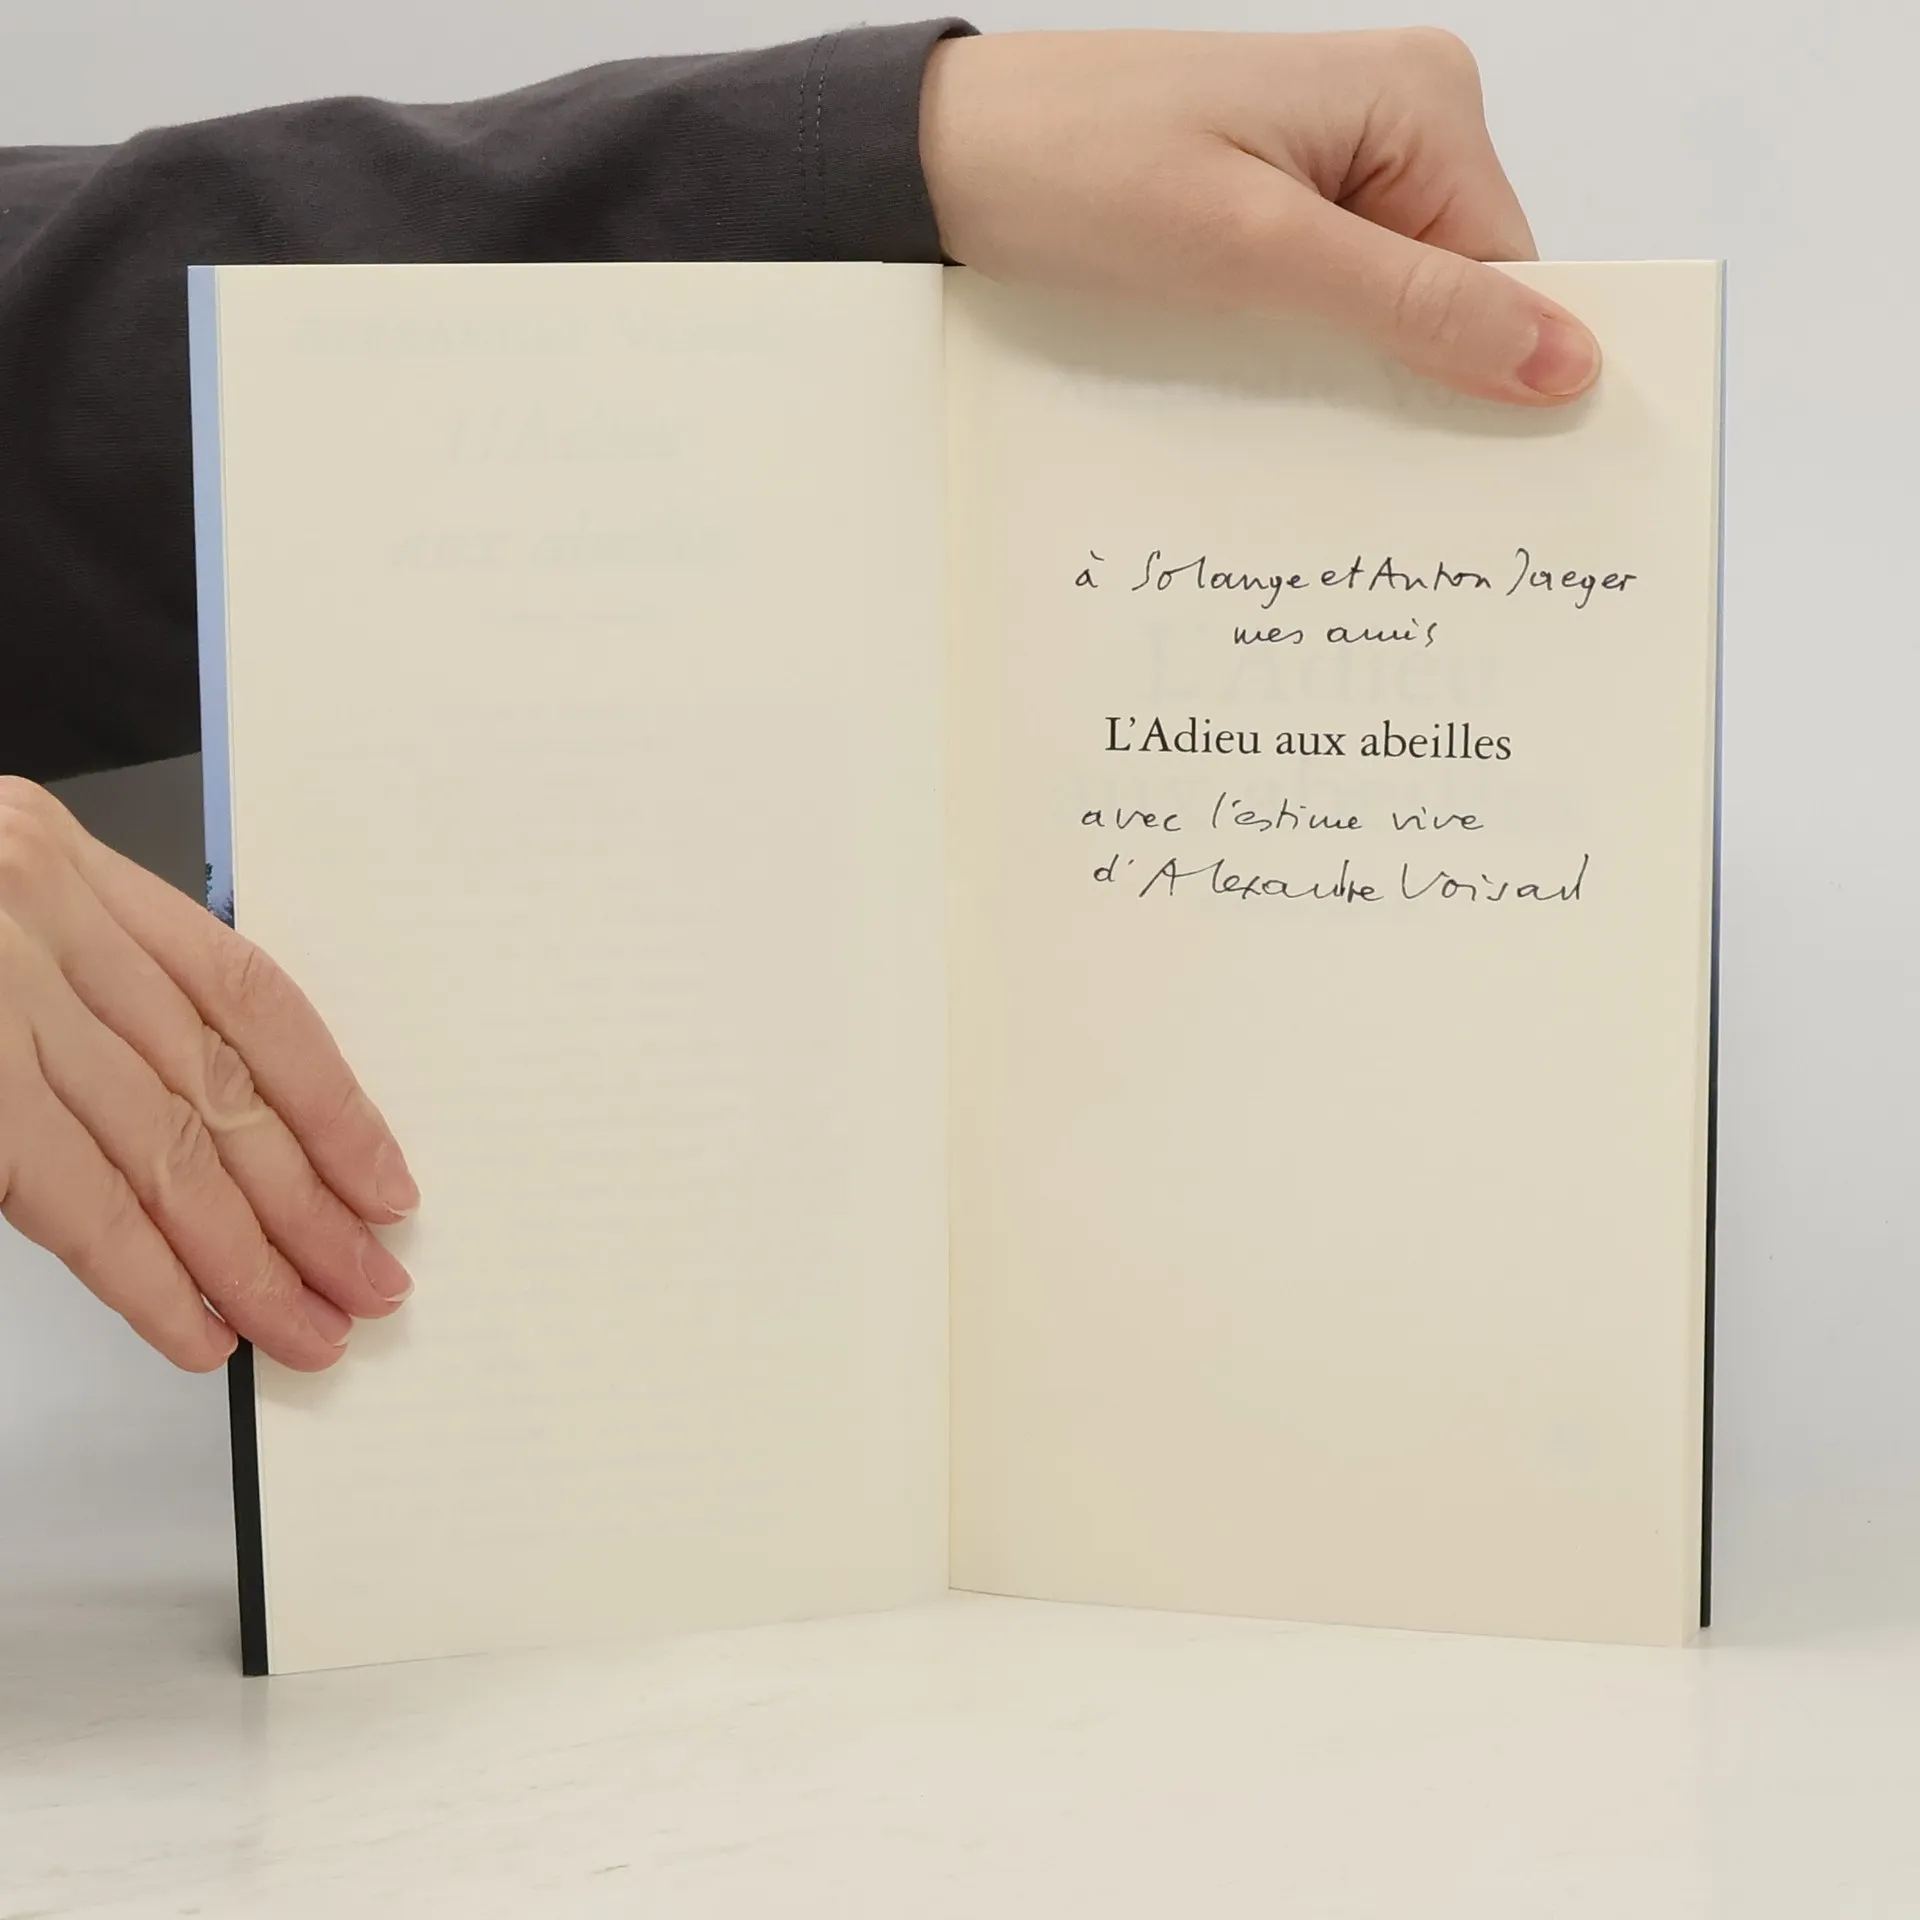 à Solange et Anton Jaeger
mes amis
L'Adieu aux abeilles
avec l'estime vive
d'Alexandre Voisard